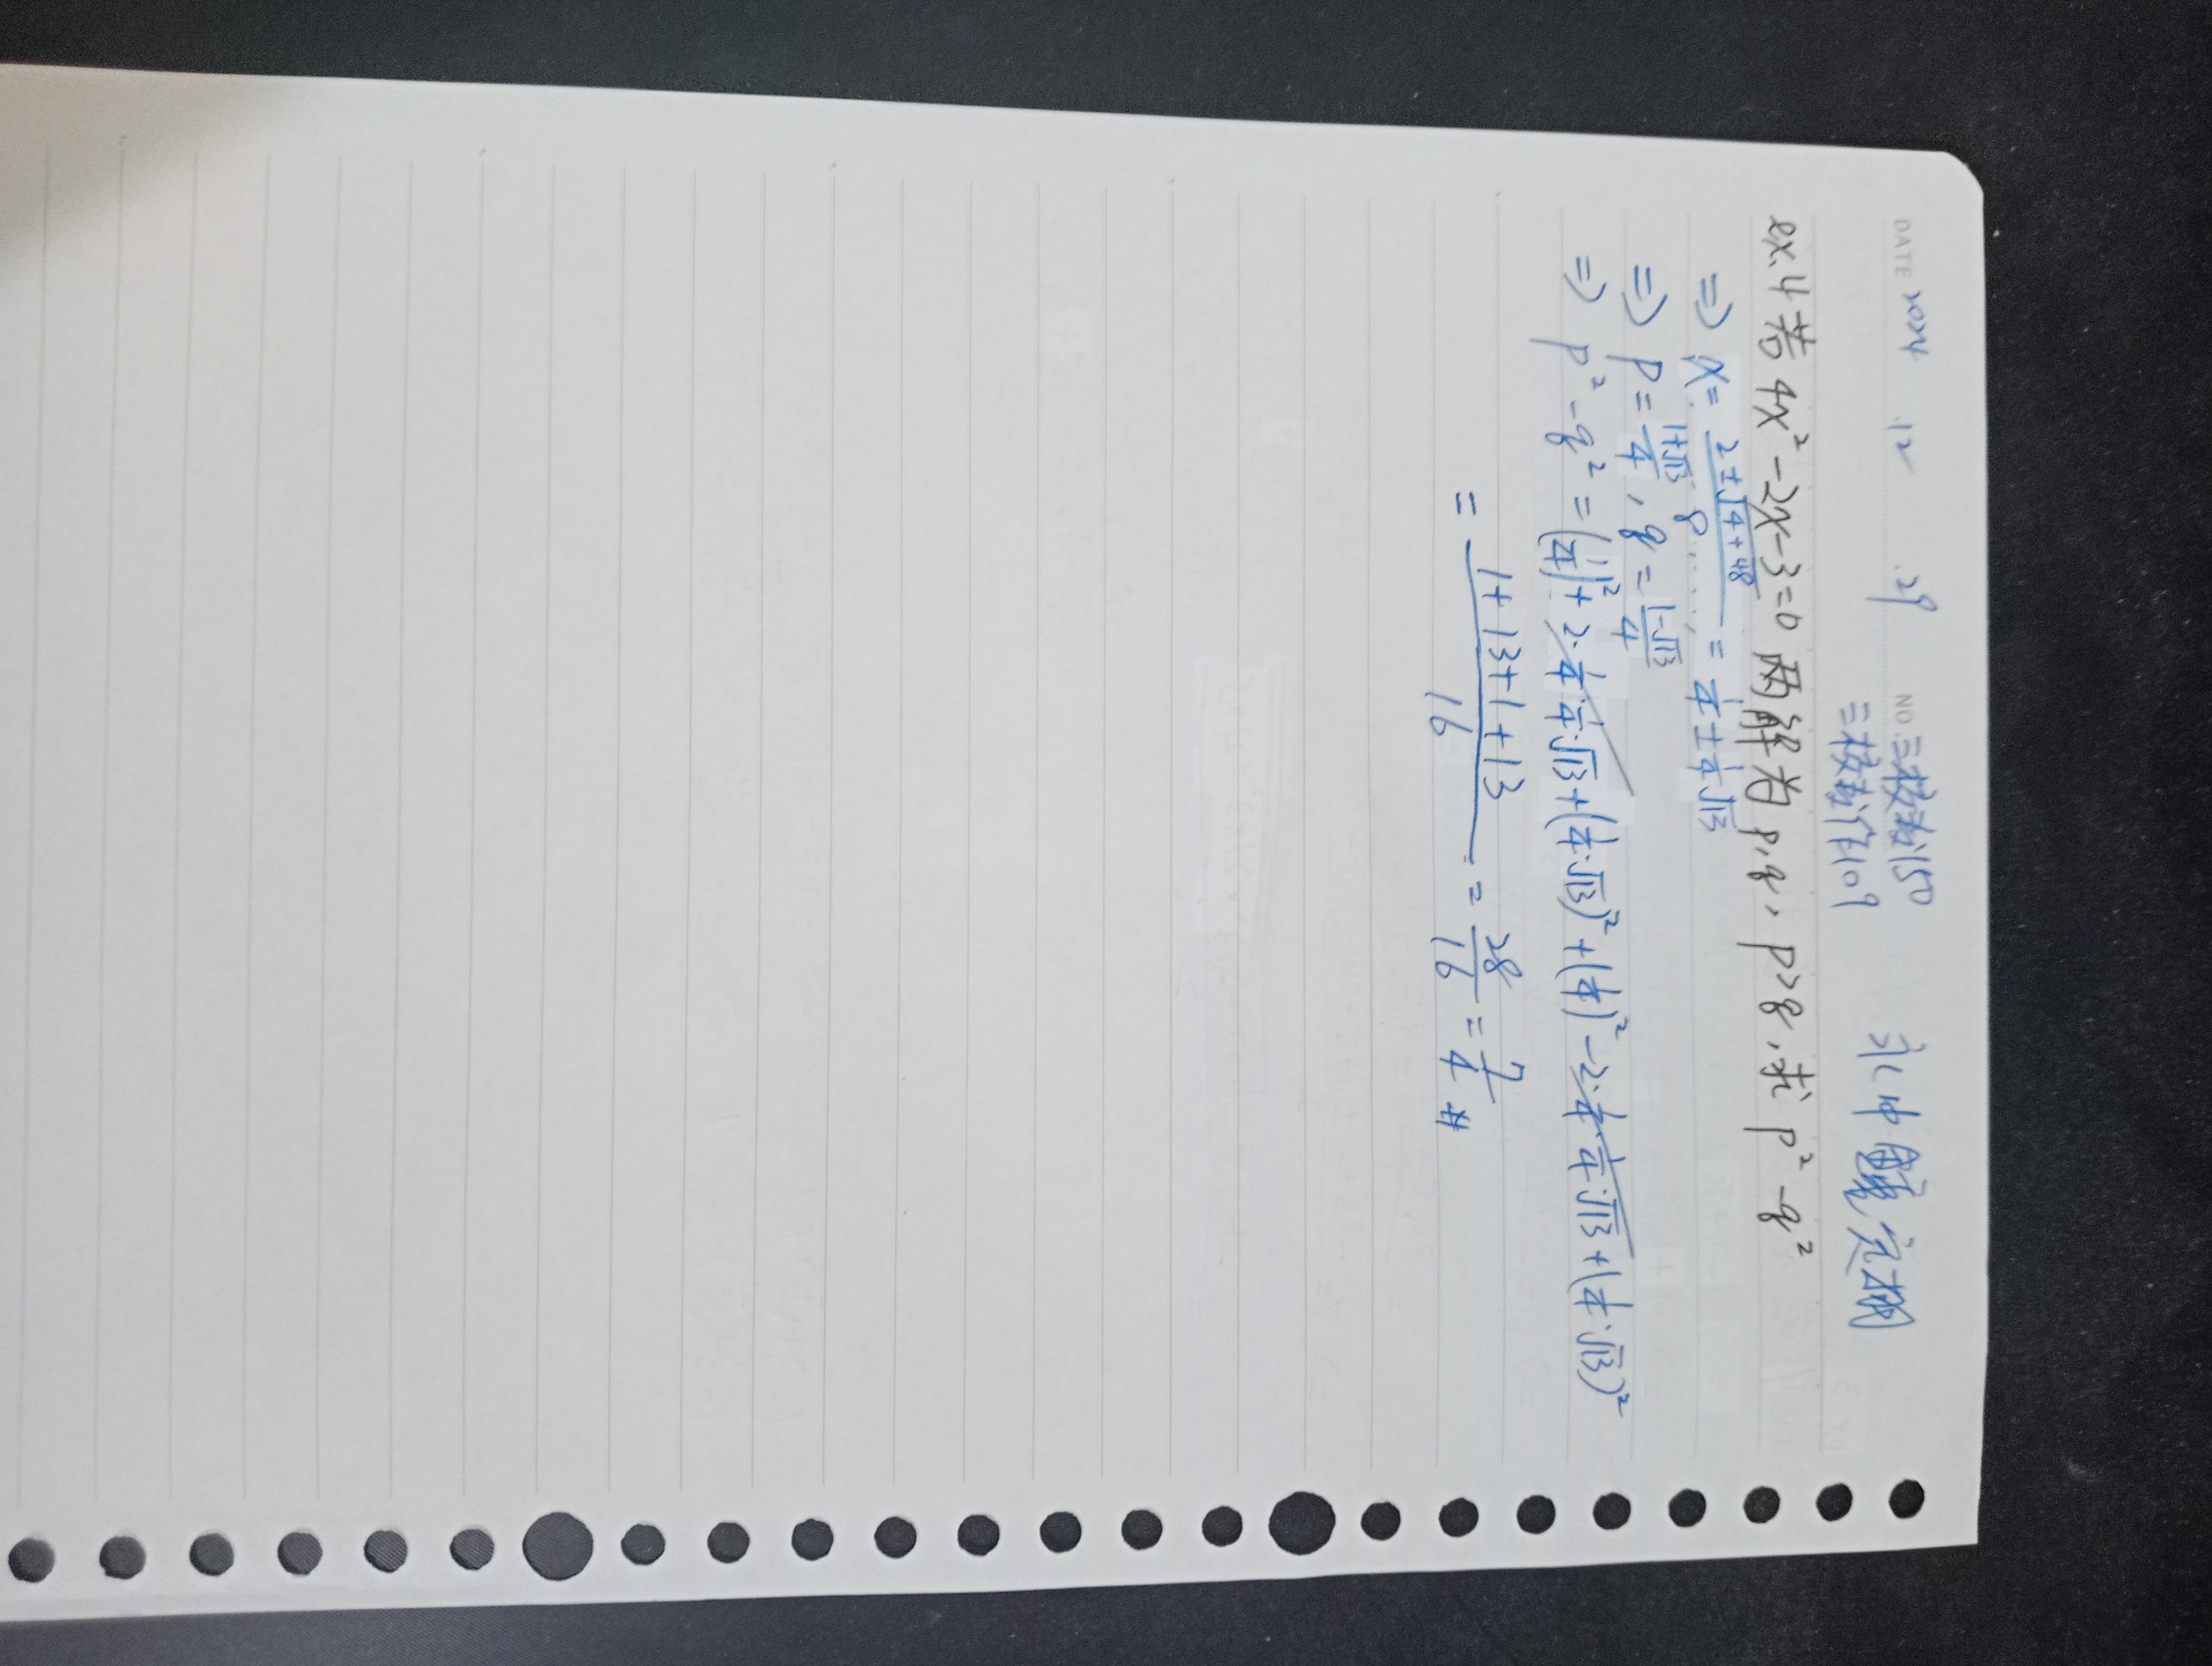 DATE 2024 .12 .29 NO. 三校教150 永中鍾定栩
三校教作109
ex.4 若 4x²-2x-3=0 两解为 p,q, p>q, 求 p²-q²
=> x= (2±√(4+48))/8 = 1/4 ± 1/4√13
=> p= (1+√13)/4, q = (1-√13)/4
=> p²-q² = (1/4)² + 2·1/4·1/4·√13 + (1/4·√13)² + (1/4)² - 2·1/4·1/4·√13 + (1/4·√13)²
= (1+13+1+13)/16 = 28/16 = 7/4 #